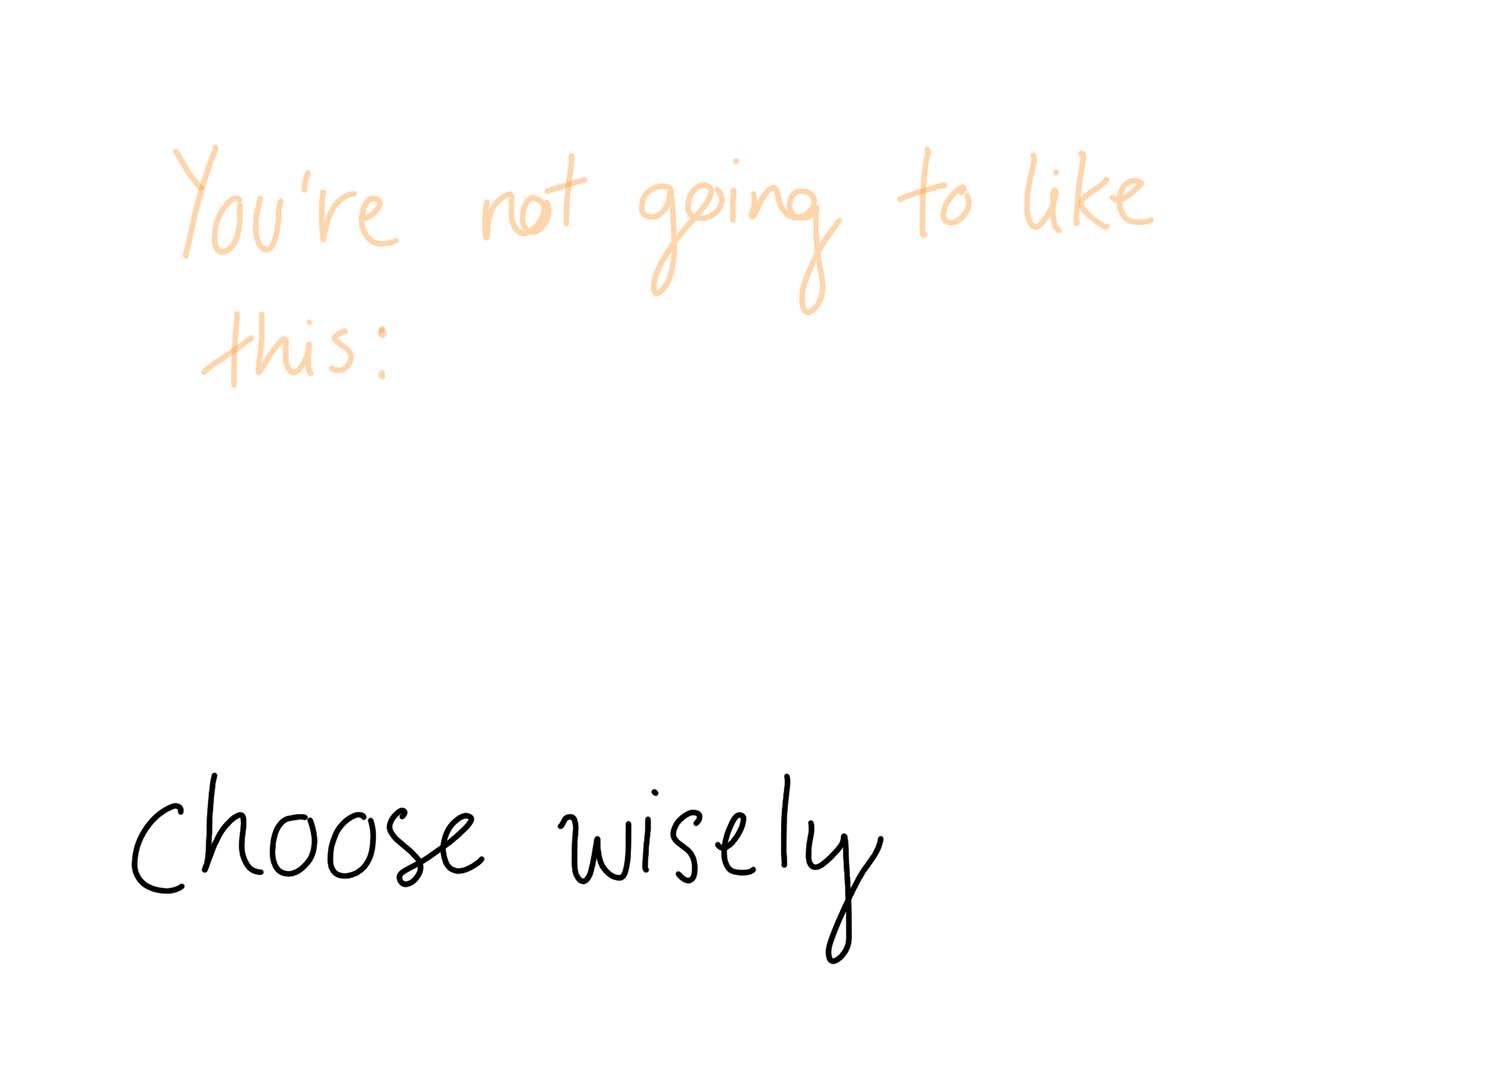 You're not going to like
this:
choose wisely